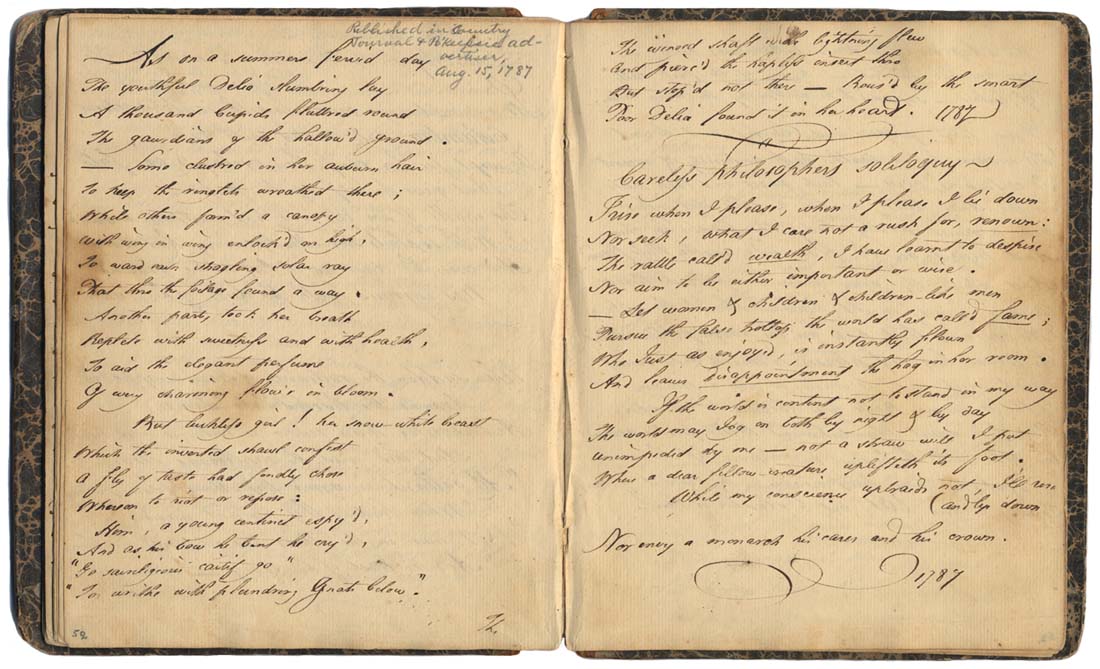 Published in Country
Journal & P'keepsie ad-
vertiser,
Aug. 15, 1787
As on a summers fervid day
The youthful Delia slumbring lay
A thousand Cupids fluttered round
The gaurdians of the hallow'd ground.
— Some clustred in her auburn hair
To keep the ringlets wreathed there;
While others form'd a canopy
with wing in wing enlock'd on high,
To ward each stragling solar ray
That thro the foliage found a way.
Another party took her breath
Replete with sweetness and with health,
To aid the elegant perfume
Of every charming flow'r in bloom.
But luckless girl! her snow-white breast
Which the inverted shawl confest
A fly of taste had fondly chose
Whereon to riot or repose:
Him, a young centinel espy'd,
And as his bow he bent he cry'd,
"Go sacriligious caitif go"
"To writhe with plundring Gnats below."
Th.
52
The winged shaft with lightning flew
And pierc'd the hapless insect thro
But stop'd not there — Rous'd by the smart
Poor Delia found it in her heart. 1787
Careless philosophers soliloquy
I rise when I please, when I please I lie down
Nor seek, what I care not a rush for, renown:
The rattle call'd wealth, I have learnt to despise
Nor aim to be either important or wise.
— Let women & children & children-like men
Pursue the false trollop the world has call'd fame;
Who just as enjoy'd, is instantly flown
And leaves disappointment the hag in her room.
If the world is content not to stand in my way
The world may jog on both by night & by day
Unimpeded by me — not a straw will I put
Where a dear fellow-creature uplifteth its foot.
While my conscience upbraids not, I'll rise
(and lye down
Nor envy a monarch his cares and his crown.
1787